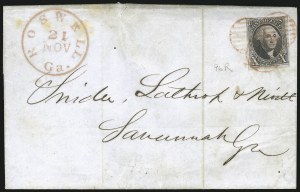 ROSWELL
21
NOV
Ga.
X
Snider, Lathrop & Nevitt
Savannah
Ga